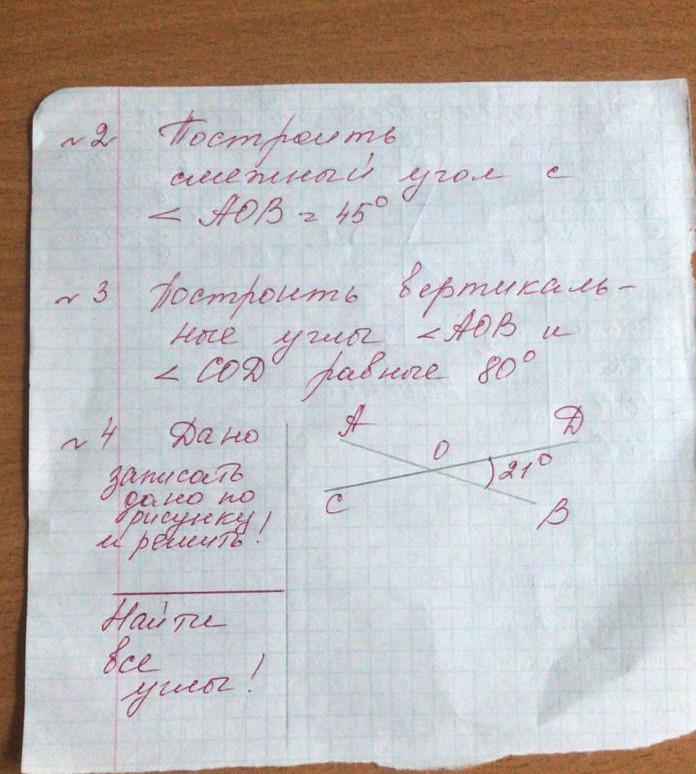 №2 Построить
смежный угол с
∠AOB = 45°
№3 Построить вертикаль-
ные углы ∠AOB и
∠COD равные 80°
№4 Дано
записать
дано по
рисунку
и решить!
Найти
все
углы!
A
O
D
21°
C
B